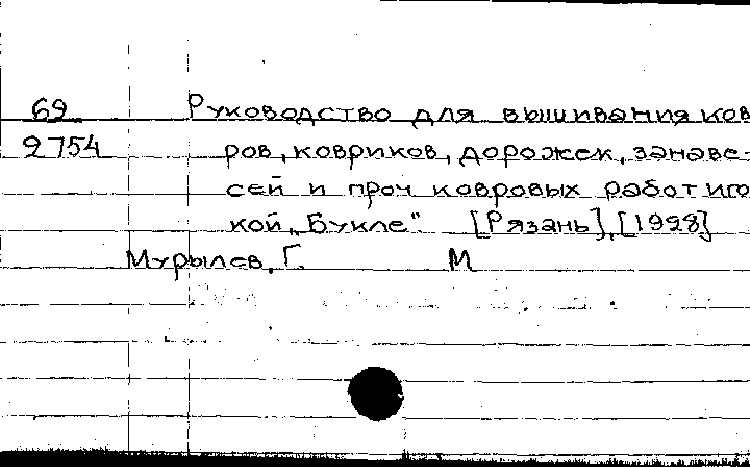 69 Руководство для вышивания ков
2754 ров, ковриков, дорожек, занаве-
сей и проч ковровых работ иго
кой „Букле". [Рязань], [1928]
Мурылев, Г. М